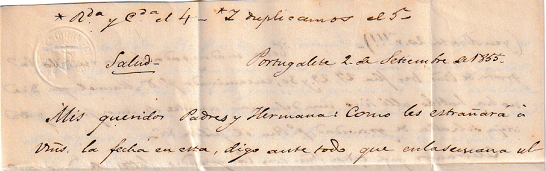 * Rda y Cda el 4 - *Z duplicamos el 5-
Salud- Portugalete 2 de Setiembre de 1855-
Mis queridos Padres y Hermana: Como les estrañará à
Vms. la fecha en esta, digo ante todo, que en la semana ul-